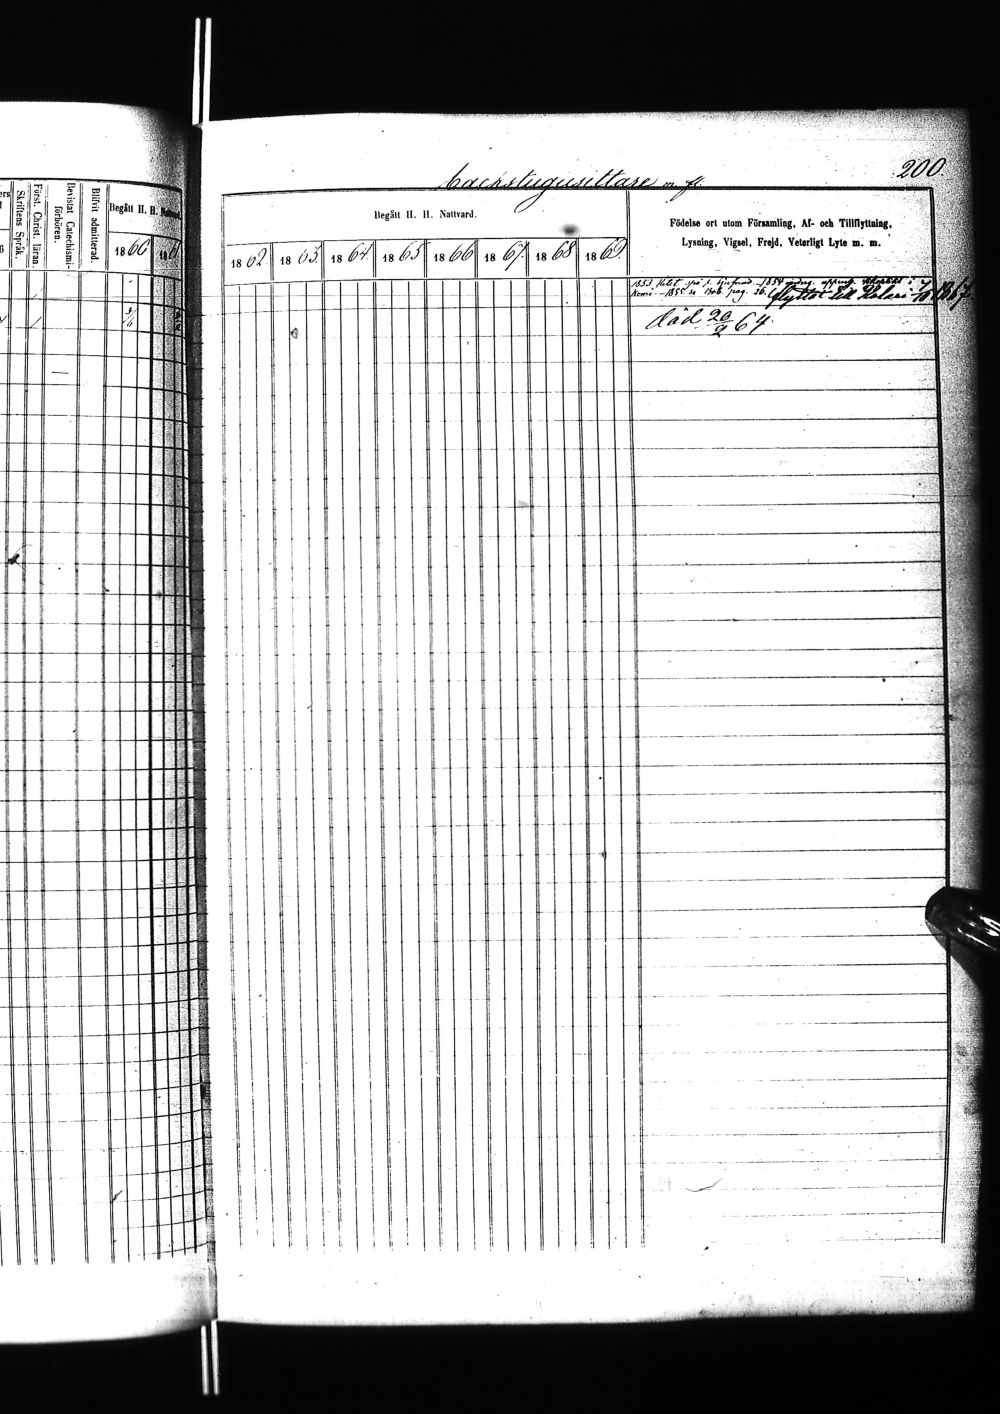 200.
Backstugusittare m. fl.
Skriftens Språk.
Först. Christ. läran
Bevistat Catechismi-
förhören.
Blifvit admitterad.
Begått H. H. Nattvard.
1860 1861
Begått H. H. Nattvard.
1862 1863 1864 1865 1866 1867 1868 1869
Födelse ort utom Församling, Af- och Tillflyttning,
Lysning, Vigsel, Frejd, Veterligt Lyte m. m.
1853 1854
1855 pag. 26. flyttat till Kolari 1867
död 20/2 64.